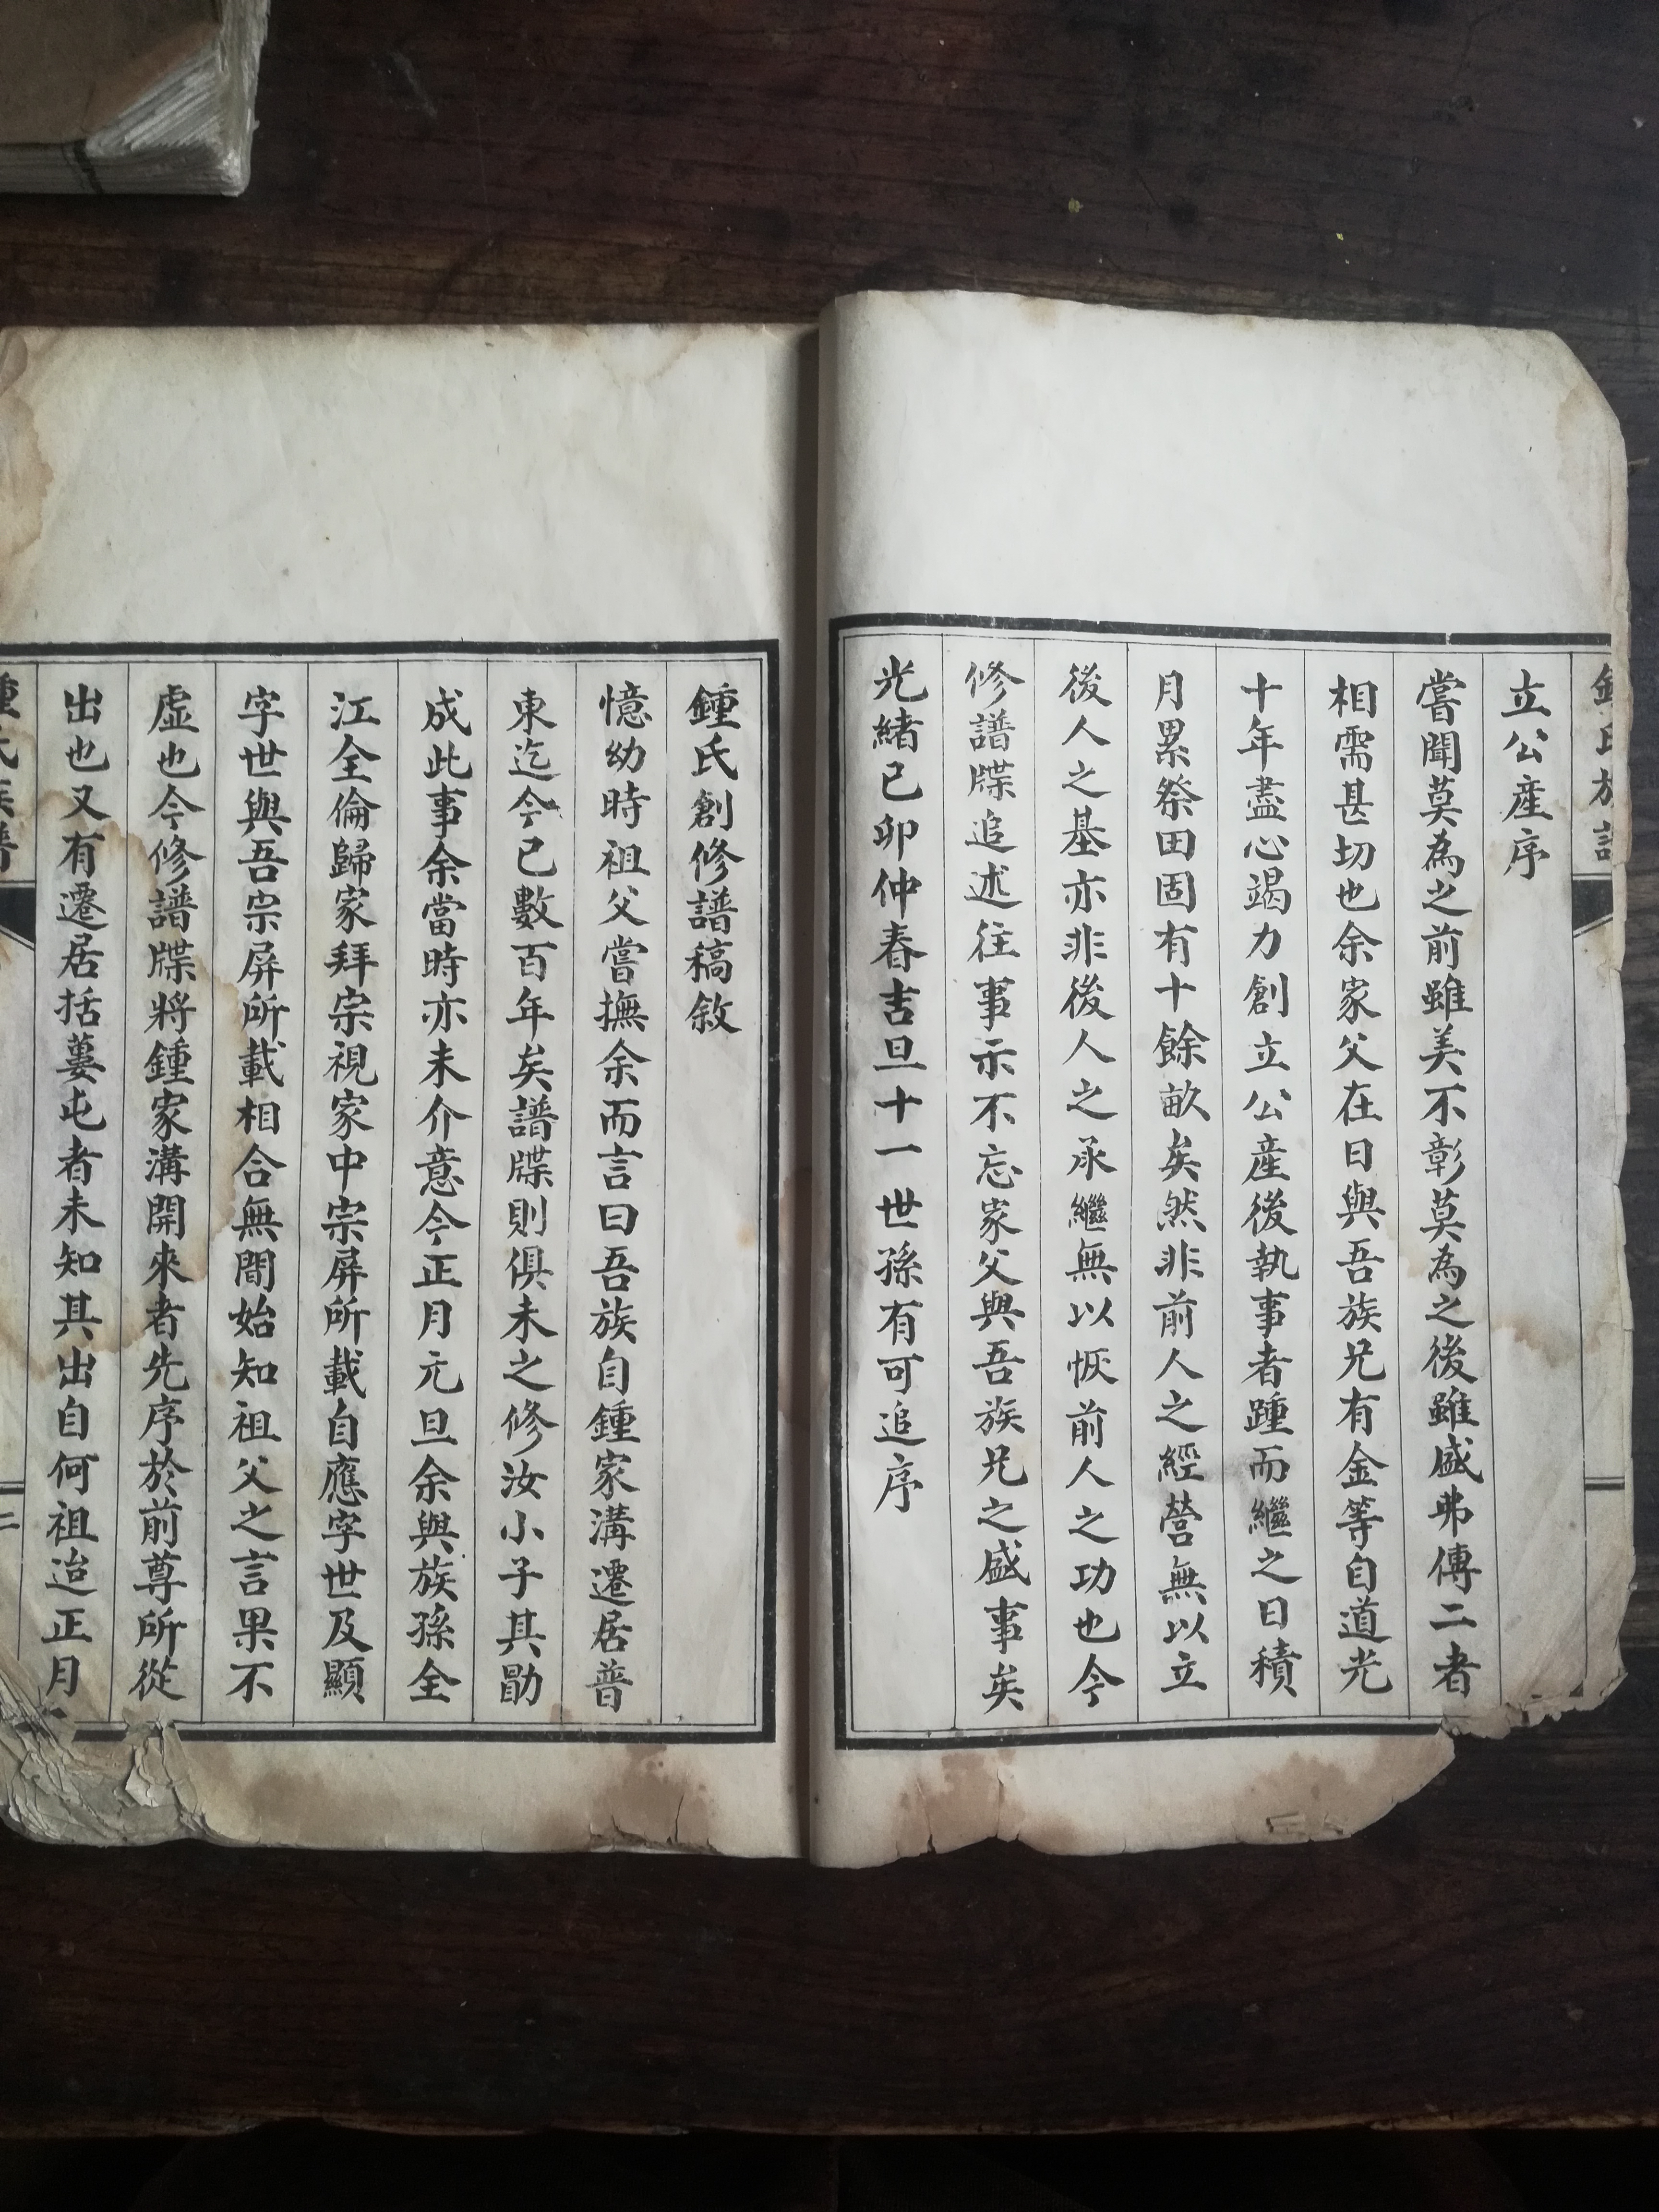 立公產序
嘗聞莫為之前雖美不彰莫為之後雖盛弗傳二者
相需甚切也余家父在日與吾族兄有金等自道光
十年盡心竭力創立公產後執事者踵而繼之日積
月累祭田固有十餘畝矣然非前人之經營無以立
後人之基亦非後人之承繼無以恢前人之功也今
修譜牒追述往事示不忘家父與吾族兄之盛事矣
光緒已卯仲春吉旦十一世孫有可追序
鍾氏創修譜稿敘
憶幼時祖父嘗撫余而言曰吾族自鍾家溝遷居普
東迄今已數百年矣譜牒則俱未之修汝小子其勖
成此事余當時亦未介意今正月元旦余與族孫全
江全倫歸家拜宗視家中宗屏所載自應字世及顯
字世與吾宗屏所載相合無間始知祖父之言果不
虛也今修譜牒將鍾家溝開來者先序於前尊所從
出也又有遷居括蔞屯者未知其出自何祖迨正月
二